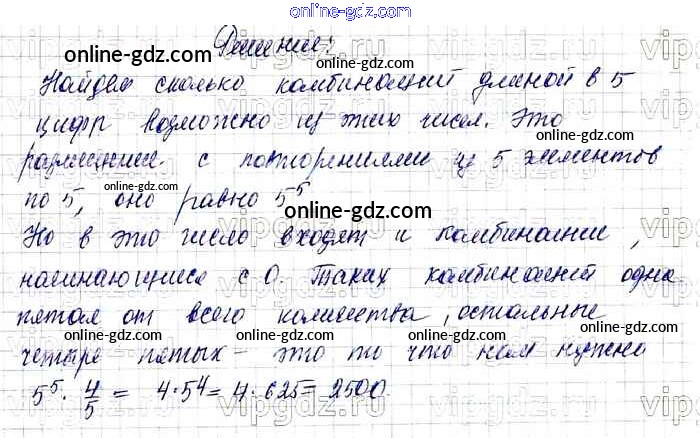 online-gdz.com
Решение:
online-gdz.com
Найдем сколько комбинаций длиной в 5
online-gdz.com
цифр возможно из этих чисел. Это
online-gdz.com
размещение с повторениями из 5 элементов
online-gdz.com online-gdz.com
по 5, оно равно 5⁵
online-gdz.com
Но в это число входят и комбинации,
online-gdz.com
начинающиеся с 0. Таких комбинаций одна
online-gdz.com
пятая от всего количества, остальные
online-gdz.com online-gdz.com online-gdz.com
четыре пятых - это то что нам нужно
5⁵ · 4/5 = 4·5⁴ = 4·625 = 2500.
online-gdz.com
vipgdz.ru